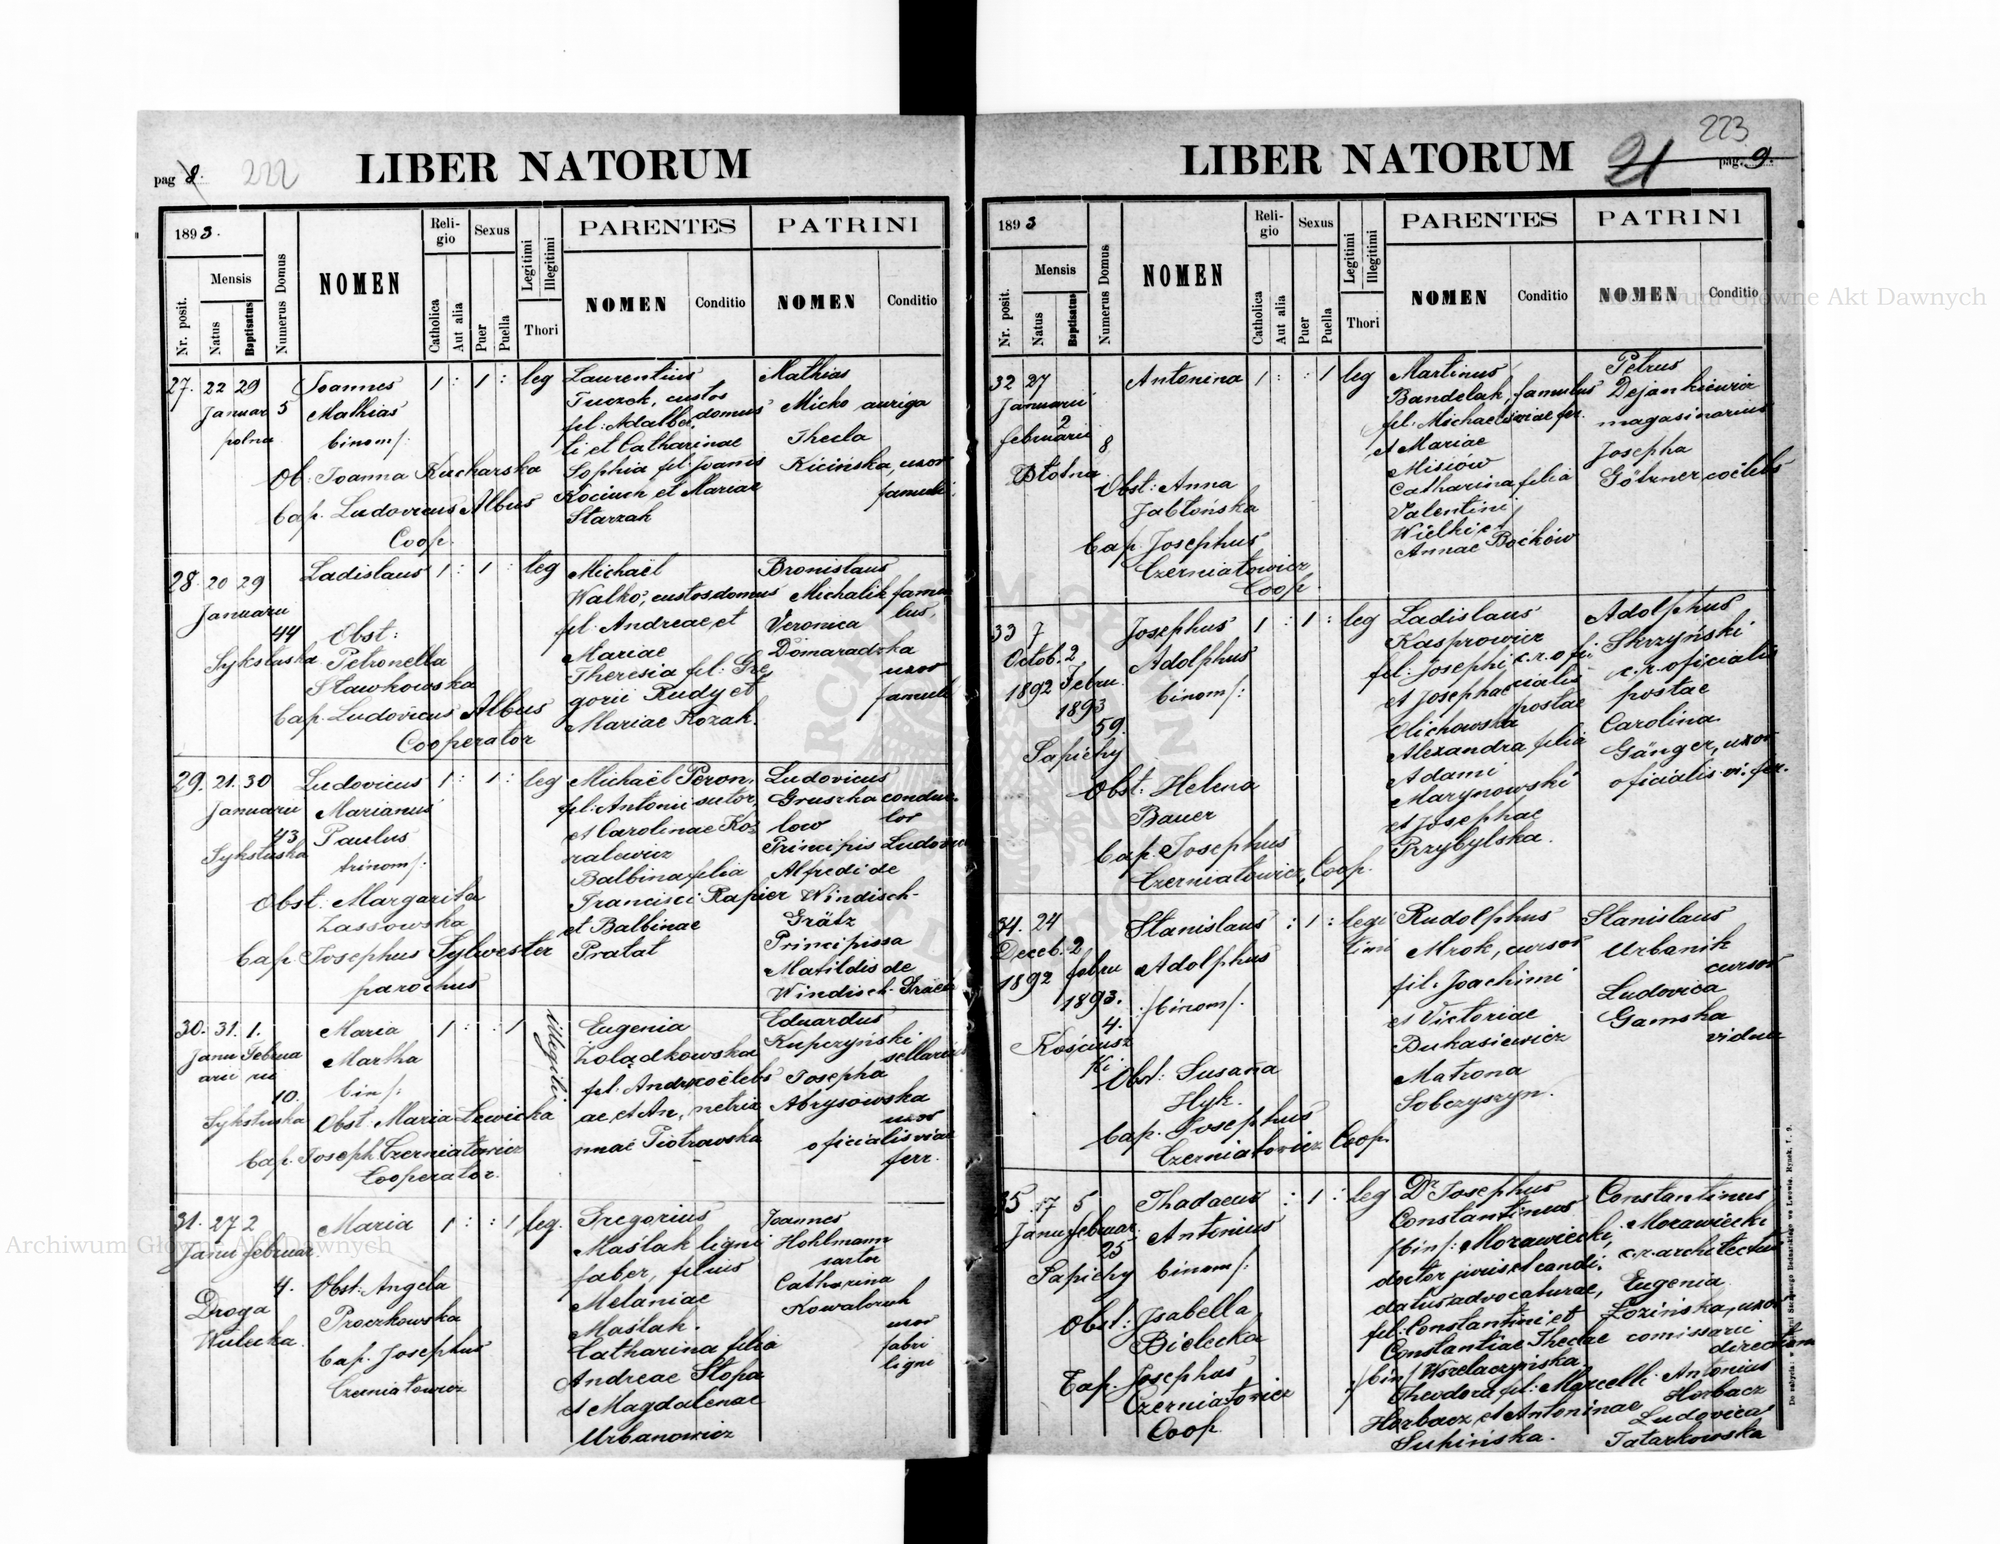 pag 8. 222
LIBER NATORUM
1893.
Nr. posit.
Mensis
Natus
Baptisatus
Numerus Domus
NOMEN
Religio
Catholica
Aut alia
Sexus
Puer
Puella
Legitimi
Illegitimi
Thori
PARENTES
NOMEN
Conditio
PATRINI
NOMEN
Conditio
27. 22 29 Joannes 1 : 1 : leg Laurentius Mathias
Januar 5 Mathias Tuczek, custos Micko auriga
polna binom/: fil: Adalber domus Thecla
ti et Catharinae Kicińska, uxor
Ob: Joanna Kucharska Sophia fil. Joannis famuli
Cap. Ludovicus Albus Kociuch et Mariae
Coop. Starzak
28. 20 29 Ladislaus 1 : 1 : leg Michaël Bronislaus
Januaru Walko, custos domus Michalik famu
44 Obst: fil. Andreae, et Veronica lus,
Sykstuska Petronella Mariae Domaradzka
Sławkowska Theresia fil: Gre uxor
Cap. Ludovicus Albus gorii Rudy et famuli
Cooperator Mariae Kozak.
29. 21. 30 Ludovicus 1 : 1 : leg Michaël Peron, Ludovicus
Januaru Marianus fil: Antonii sutor, Gruszka conduc
43 Paulus et Carolinae Ko low tor
Sykstuska trinom/: zalewicz Principis Ludovici
Balbina filia Alfredi de
Obst: Margarita Francisci Rapier Windisch-
Zassowska et Balbinae Grätz
Cap. Josephus Sylwester Pratat Principissa
parochus Matildis de
Windisch-Graetz
30. 31. 1. Maria 1 : : 1 illegitimi Eugenia Eduardus
Janu Februa Martha Żołądkowska Kupczyński
arii rii bin/: fil. Andre coelebs sellarius
10. ae, et An, netrix Josepha
Sykstuska Obst: Maria Lewicka nnae Piotrowska Abrysowska
Cap. Joseph Czerniatowicz uxor
Cooperator. oficialis viae
ferr.
31. 27 2 Maria 1 : : 1 leg. Gregorius Joannes
Janu februar Maślak ligni Hohlmann
4. Obst: Angela faber, filius sartor
Droga Proczkowska Melaniae Catharina
Wulecka. Cap. Josephus Maślak. Kowalczuk
Czerniatowicz Catharina filia uxor
Andreae Stopa fabri
et Magdalenae ligni
Urbanowicz
223
21 pag. 9.
LIBER NATORUM
1893
Nr. posit.
Mensis
Natus
Baptisatus
Numerus Domus
NOMEN
Religio
Catholica
Aut alia
Sexus
Puer
Puella
Legitimi
Illegitimi
Thori
PARENTES
NOMEN
Conditio
PATRINI
NOMEN
Conditio
32 27 Antonina 1 : : 1 leg Martinus Petrus
Januaru Bandelak, famulus Dejankiewicz
2 fil: Michaelis viae fer. magasinarius
februarii 8 et Mariae Josepha
Błotna Misiów Götzner, coelebs
Obst: Anna Catharina filia
Jabłońska Valentini
Cap. Josephus Wielki et
Czerniatowicz Annae Boćków
Coop
33 7 Josephus 1 : 1 : leg Ladislaus Adolphus
Octob. 2 Adolphus Kasprowicz Skrzyński
1892 Febru. binom/: fil: Josephi c. r. offi c. r. oficialis
1893 et Josephae cialis postae
59. Olichowska postae Carolina
Sapiehy Alexandra filia Gänger, uxor
Obst: Helena Adami oficialis vi. fer.
Bauer Marynowski
Cap. Josephus et Josephae
Czerniatowicz, Coop. Przybylska.
34. 24 Stanislaus : 1 : legi Rudolphus Stanislaus
Deceb. 2 Adolphus timi Mrok, cursor Urbanik
1892 febru /:binom/. fil. Joachimi cursor
1893. et Victoriae Ludovica
4. Bukasiewicz Gamska
Kościusz Matrona vidua
ki Obst: Susana Sobczyszyn.
Hyk.
Cap. Josephus
Czerniatowicz Coop.
35 17 5 Thadaeus : 1 : leg Dr. Josephus Constantinus
Janu februar Antonius Constantinus Morawiecki
25 binom/: /bin/: Morawiecki, c. r. architectus
Sapiehy doctor juris et candi, Eugenia
Obst: Isabella datus advocaturae, Łozińska, uxor
Bielecka fil: Constantini et comissarii
Cap. Josephus Constantiae Theclae direction
Czerniatowicz /bin/ Wszelaczyńska Antonius
Coop Theodora fil: Marcelli Horbacz
Horbacz et Antoninae Ludovica
Supińska. Tatarkowska
Archiwum Główne Akt Dawnych
Archiwum Główne Akt Dawnych